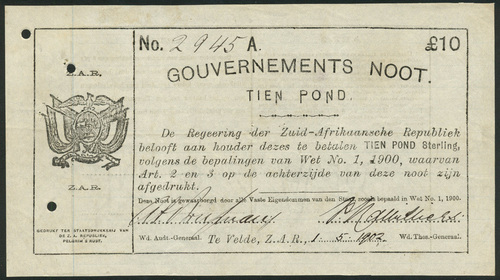 No. 2945 A. £10
GOUVERNEMENTS NOOT.
TIEN POND.
Z.A.R.
De Regeering der Zuid-Afrikaansche Republiek
belooft aan houder dezes te betalen TIEN POND Sterling,
volgens de bepalingen van Wet No. 1, 1900, waarvan
Art. 2 en 3 op de achterzijde van deze noot zijn
afgedrukt.
Z.A.R.
Deze Noot is gewaarborgd door alle Vaste Eigendommen van den Staat, zooals bepaald in Wet No. 1, 1900.
GEDRUKT TER STAATSDRUKKERIJ VAN
DE Z. A. REPUBLIEK,
PELGRIM'S RUST.
Wd. Audit.-Generaal. Te Velde, Z.A.R., 1 - 5 - 1902 Wd. Thes.-Generaal.